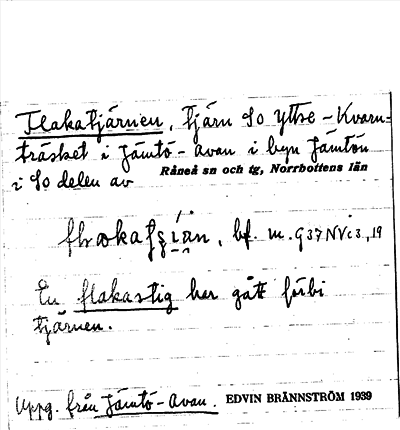 Flakatjärnen, tjärn SO Yttre-Kvarn-
träsket i Jämtö-avan i byn Jämtön
Råneå sn och tg, Norrbottens län
i SO delen av
bf. m. G 37 NV i 3, 19
En flakastig har gått förbi
tjärnen.
Uppg. från Jämtö-avan. EDVIN BRÄNNSTRÖM 1939